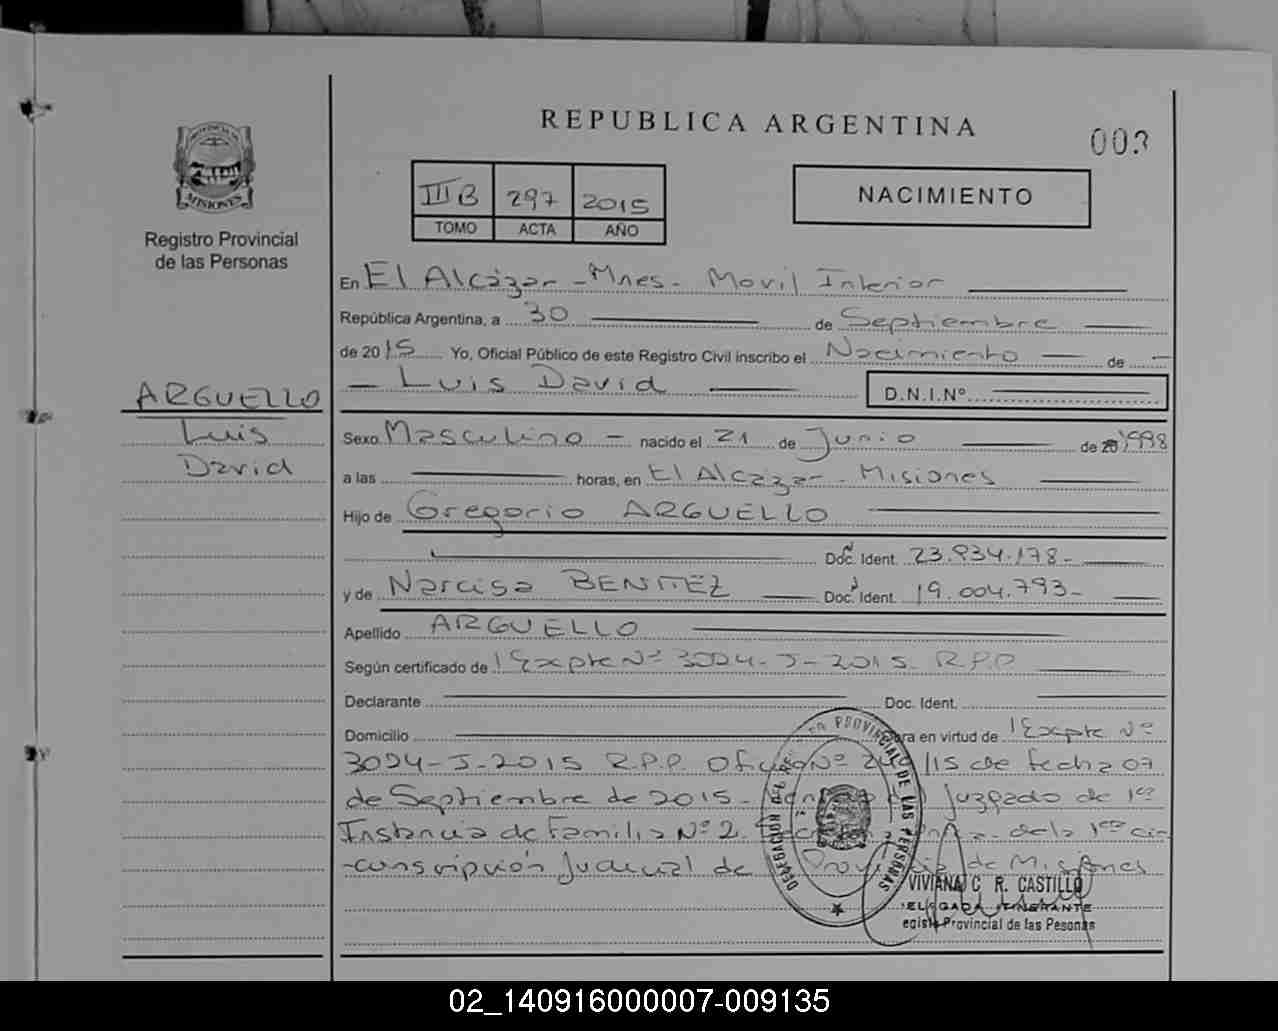 REPUBLICA ARGENTINA
003
PROVINCIA DE
MISIONES
Registro Provincial
de las Personas
III B 297 2015
TOMO ACTA AÑO
NACIMIENTO
En El Alcázar - Mnes - Movil Interior
República Argentina, a 30 de Septiembre
de 2015 Yo, Oficial Público de este Registro Civil inscribo el Nacimiento de
Luis David
D.N.I.Nº
ARGUELLO
Luis
David
Sexo Masculino - nacido el 21 de Junio de 1998
a las horas, en El Alcázar - Misiones
Hijo de Gregorio ARGUELLO
Doc. Ident. 23.934.178-
y de Narcisa BENITEZ Doc. Ident. 19.004.793-
Apellido ARGUELLO
Según certificado de Expte Nº 3024-J-2015 R.P.P
Declarante Doc. Ident.
Domicilio Obra en virtud de Expte Nº
3024-J-2015 R.P.P. Oficio Nº /15 de fecha 07
de Septiembre de 2015- Juzgado de 1ra
Instancia de Familia Nº 2. de la 1ra cir
-cunscripción Judicial de Provincia de Misiones
DELEGACIÓN DEL REGISTRO PROVINCIAL DE LAS PERSONAS
VIVIANA C. R. CASTILLO
DELEGADA ITINERANTE
egistro Provincial de las Pesonas
02_140916000007-009135